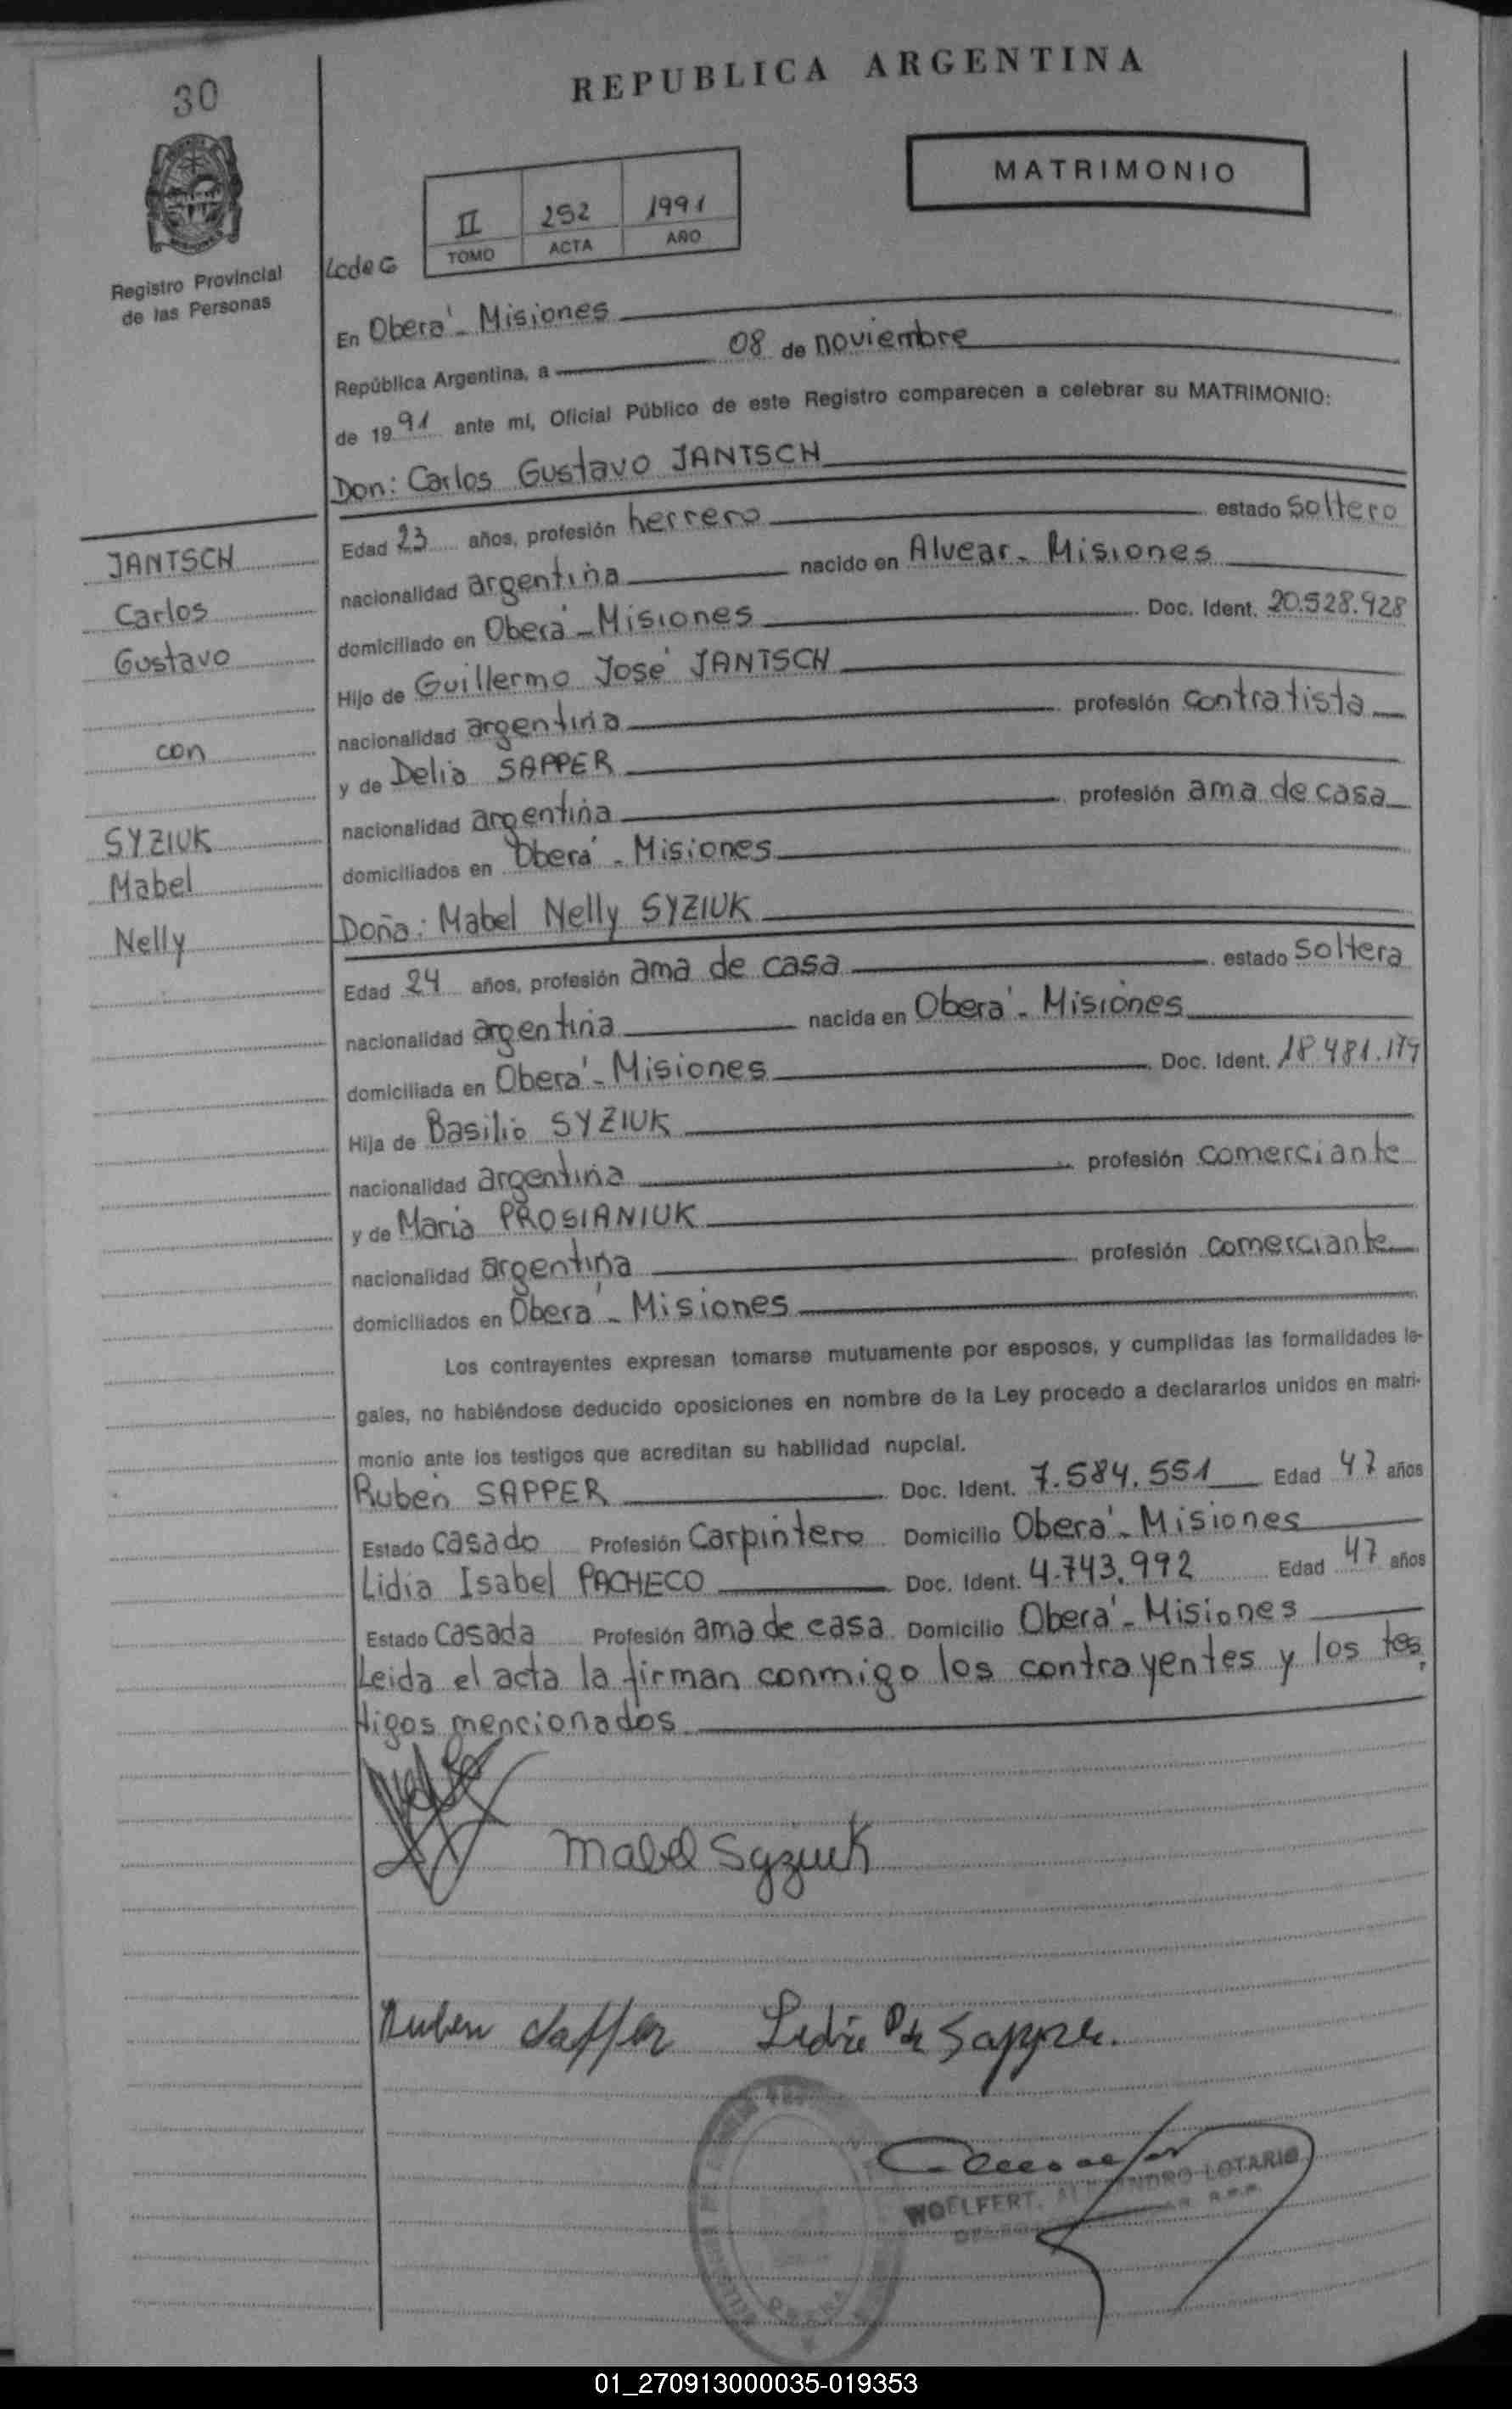 REPUBLICA ARGENTINA
30
MATRIMONIO
II 252 1991
TOMO ACTA AÑO
Registro Provincial
de las Personas
LcdeG
En Oberá - Misiones
República Argentina, a 08 de noviembre
de 1991 ante mí, Oficial Público de este Registro comparecen a celebrar su MATRIMONIO:
Don: Carlos Gustavo JANTSCH
Edad 23 años, profesión herrero estado soltero
JANTSCH
nacionalidad argentina nacido en Alvear - Misiones
Carlos
domiciliado en Oberá - Misiones Doc. Ident. 20.528.928
Gustavo
Hijo de Guillermo José JANTSCH
nacionalidad argentina profesión contratista
con
y de Delia SAPPER
nacionalidad argentina profesión ama de casa
SYZIUK
domiciliados en Oberá - Misiones
Mabel
Doña: Mabel Nelly SYZIUK
Nelly
Edad 24 años, profesión ama de casa estado soltera
nacionalidad argentina nacida en Oberá - Misiones
domiciliada en Oberá - Misiones Doc. Ident. 18.481.179
Hija de Basilio SYZIUK
nacionalidad argentina profesión comerciante
y de Maria PROSIANIUK
nacionalidad argentina profesión comerciante
domiciliados en Oberá - Misiones
Los contrayentes expresan tomarse mutuamente por esposos, y cumplidas las formalidades le-
gales, no habiéndose deducido oposiciones en nombre de la Ley procedo a declararlos unidos en matri-
monio ante los testigos que acreditan su habilidad nupcial.
Ruben SAPPER Doc. Ident. 7.584.551 Edad 47 años
Estado casado Profesión Carpintero Domicilio Oberá - Misiones
Lidia Isabel PACHECO Doc. Ident. 4.743.992 Edad 47 años
Estado casada Profesión ama de casa Domicilio Oberá - Misiones
Leida el acta la firman conmigo los contrayentes y los tes
tigos mencionados
Mabel Syziuk
Ruben Sapper Lidia P de Sapper.
WOELFERT, ALEJANDRO LOTARIO
01_270913000035-019353